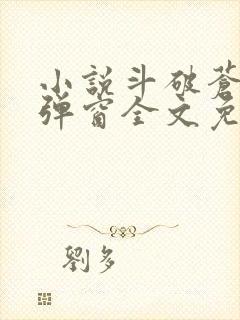 小說斗破蒼
彈窗全文免
劉多